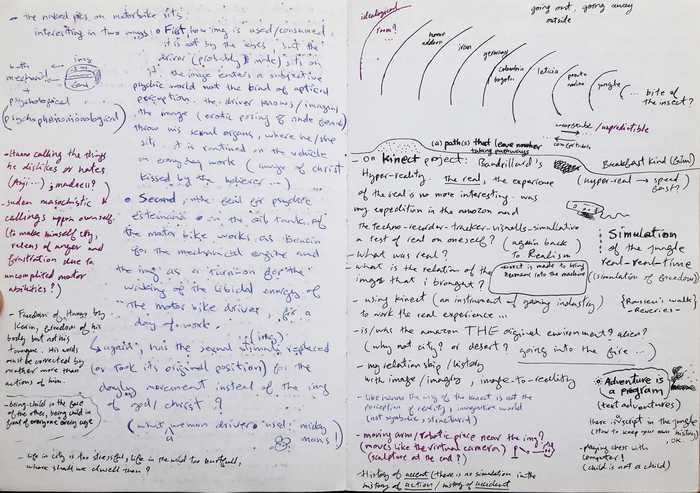 - the naked pics on motorbike sits
interesting in two ways: • First, how img is used/consumed.
it is not by the eyes, but the
driver (probably male) sits on
it. the image enters a subjective
psychic world not the kind of optical
perception. the driver knows/imagines
the image (erotic posing of nude
throw his sexual organs, where he/she
sits. it is routined on the vehicle
on everyday work (image of christ
kissed by the believer ...)
both
mechanical
+
psychological
(psychophenomenological)
• Second, the
on the oil tank of
the motor bike works as Benzin
for the mechanical engine and
the img as turn on for the
waking of the libidal energy of
the motor bike driver, for a
day of work.
(img)
again: has the sexual stimuli replaced
(or took its original position) for the
movement instead of the img
of god/christ?
(what women drivers use? mickey
a mouse!)
- Hanno calling the things
he dislikes or hates
- suden masochistic
callings upon ownself.
(to make himself cry,
release of anger and
frustration due to
uncomplited motor
abilities?)
- Freedom of Hanno by
, freedom of his
body but not his
tongue. His words
must be corrected by
mother more than
actions of him.
- Being child in the face
of the other, being child in
front of everyone
- life in city is too stressful, life in the wild too
where shall we dwell than?
ideological
from?
going out, going away
outside
home
iran
germany
colombia
bogota
leticia
puerto
nariño
jungle
... bite of
the insect?
/unpredictible
(a) path(s) that leave another
taking pathways
- On Kinect project: Baudrillard's
Hyper-reality. the real, the experience
of the real is no more interesting. was
my expedition in the amazon and
the techno-recorder-tracker-visuells-simullative
a test of real on oneself? (again back)
to Realism
- what was real?
- what is the relation of the
images that i brought?
kinect is made to bring
movement into the machine
- using kinect (an instrument of gaming industry)
to work the real experience ...
- is/was the amazon THE original environment? alien?
(why not city? or desert? going into the fire ...)
- my relationship/history
with image/imagery, image-to-reality
- like hanno the way of the kinect is not the
perception of reality,
world
(not symbolic, structured)
- moving arm/robotic piece near the img?
(moves like the virtual camera)
(sculpture at the end?)
- History of accent (there is no simulation in the
history of action / history of accident
Breakfast Kind
(hyper-real → speed)
Simulation
of the jungle
real-real-time
(simulation of freedom)
{Rousseu's walk}
- Reveries -
• Adventure is
a program
(text adventures)
there is script in the jungle
(How to keep your own history)
OK...
- playing chess with
computer!
(child is not a child)